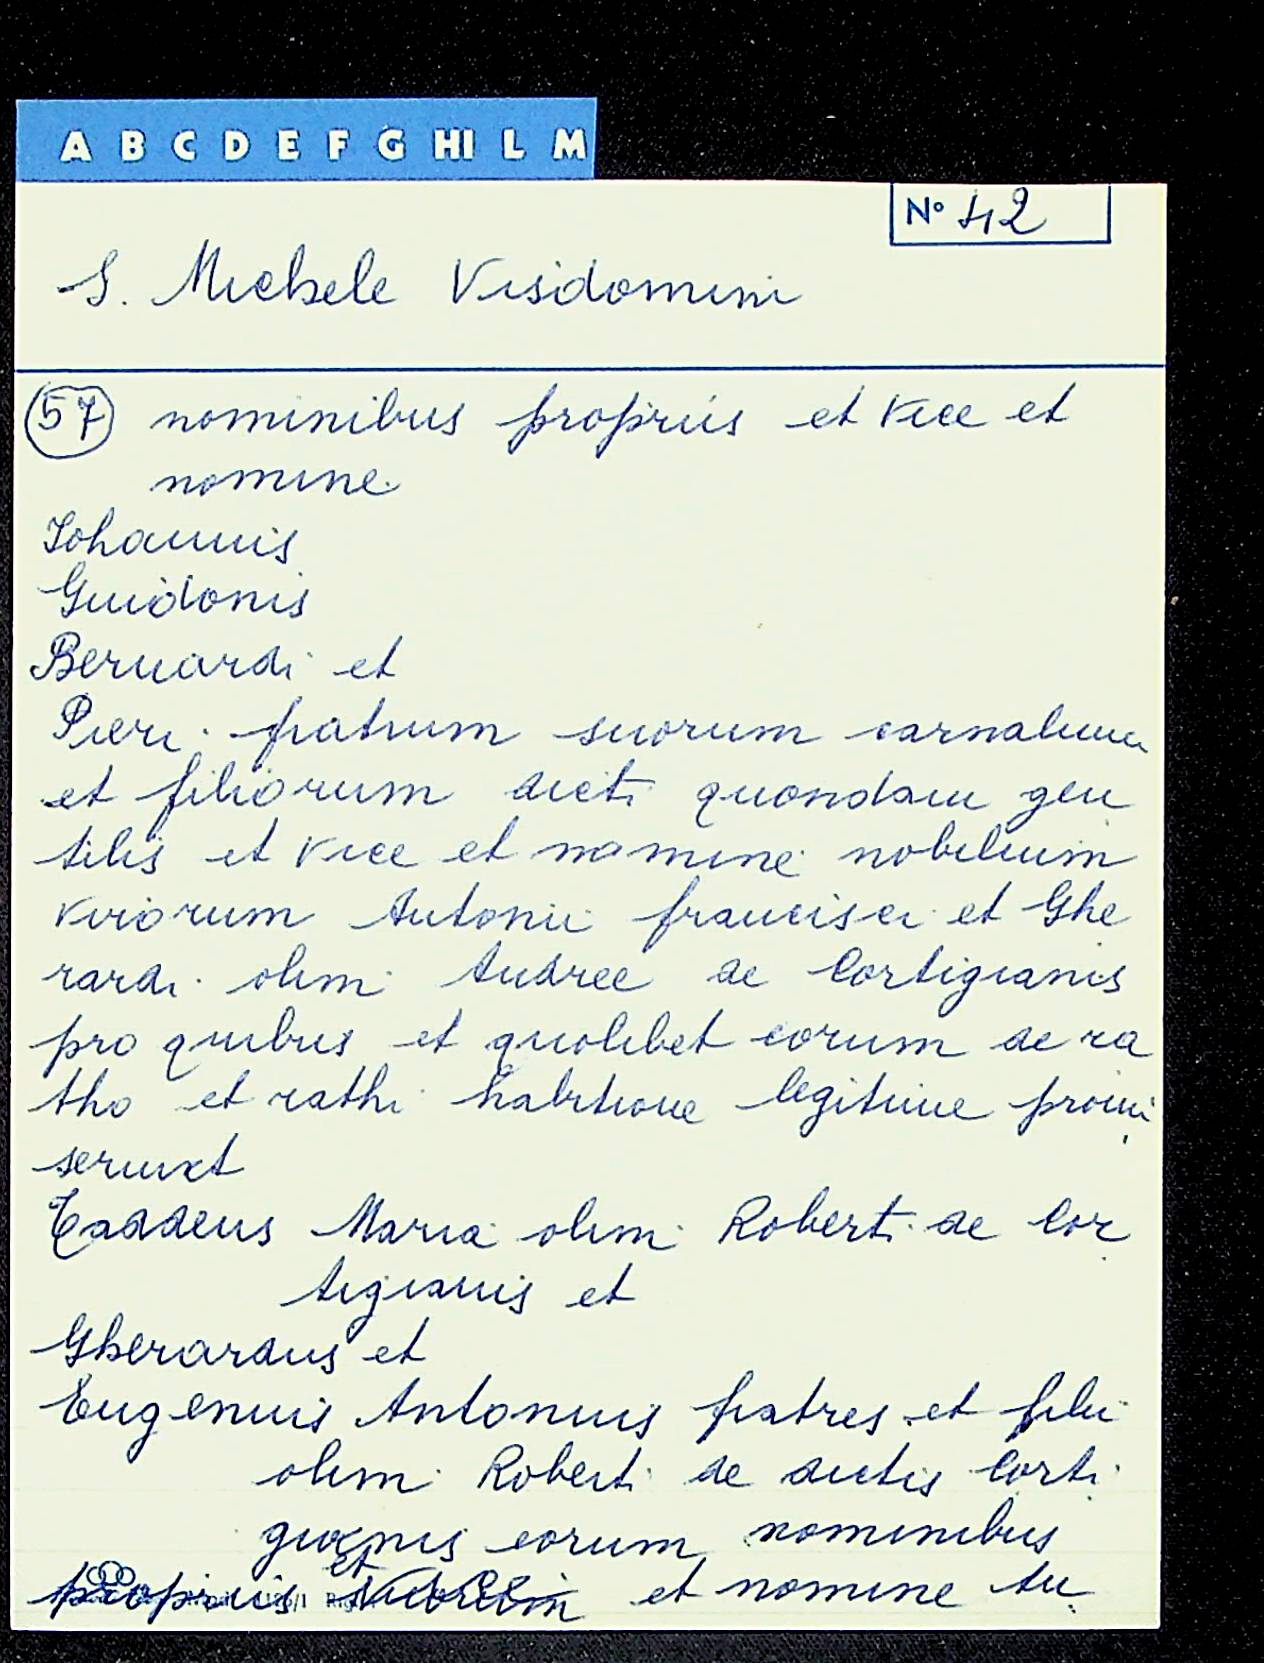 A B C D E F G HI L M
N° 42
S. Michele Visdomini
57 nominibus propriis et vice et
nomine
Iohannis
Guidonis
Bernardi et
Pieri fratrum suorum carnalium
et filiorum dicti quondam gen
tilis et vice et nomine nobilium
virorum Antonii francisci et Ghe
rardi olim Andree de Cortigianis
pro quibus et quolibet eorum de ra
tho et rathi habitione legitime promi
serunt
Taddeus Maria olim Roberti de Cor
tigianis et
Gherardus et
Eugenius Antonius fratres et filii
olim Roberti de dictis Corti
gianis eorum nominibus
propriis et vice et nomine tu